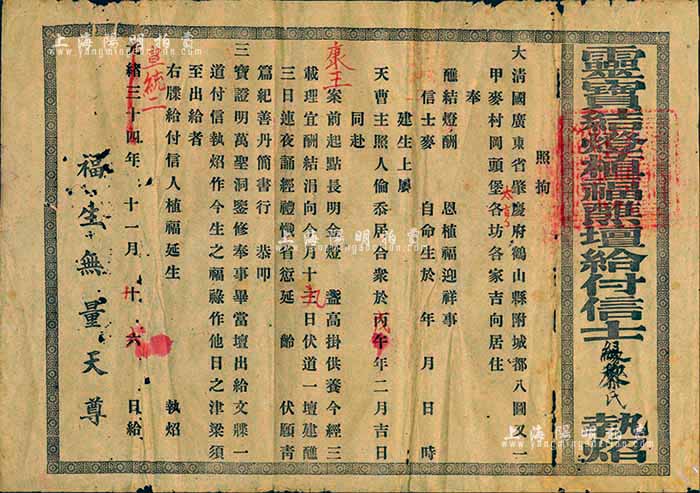 靈寶結燈植福醮壇給付信士緩黎氏執炤
照拘
大清國廣東省肇慶府鶴山縣附城都八圖又二
甲麥村岡頭堡各坊各家吉向居住
奉
醮結燈酬恩植福迎祥事
信士麥 自命生於 年 月 日 時
建生上屬
天曹主照人倫忝居合衆於丙午年二月吉日
同赴
康王案前起點長明金燈 盞高掛供養今經三
載理宜酬結涓向今月十九日伏道一壇建醮
三日連夜誦經禮懺省愆延齡 伏願青
篇紀善丹簡書行 恭叩
三寶證明萬聖洞鑒修奉事畢當壇出給文牒一
道付信執炤作今生之福祿作他日之津梁須
至出給者
右牒給付信人植福延生 執炤
宣統二
光緒三十四年 十一月 十六 日給
福生無量天尊
上海陽明拍賣
yangming
上海陽明拍賣
上海陽明拍賣
上海陽明拍賣